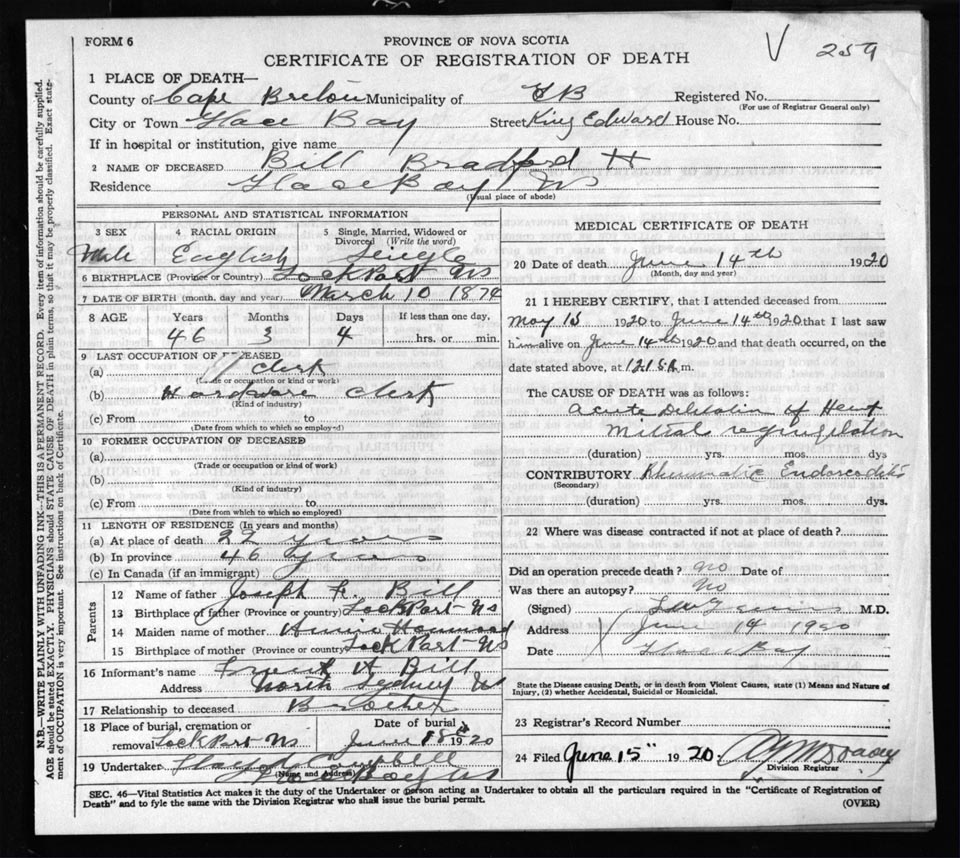 FORM 6
PROVINCE OF NOVA SCOTIA
V 259
CERTIFICATE OF REGISTRATION OF DEATH
N.B.—WRITE PLAINLY WITH UNFADING INK—THIS IS A PERMANENT RECORD. Every item of information should be carefully supplied.
AGE should be stated EXACTLY. PHYSICIANS should STATE CAUSE OF DEATH in plain terms, so that it may be properly classified. Exact state-
ment of OCCUPATION is very important. See instructions on back of Certificate.
1 PLACE OF DEATH—
County of Cape Breton Municipality of Registered No.
(For use of Registrar General only)
City or Town Glace Bay Street King Edward House No.
If in hospital or institution, give name
2 NAME OF DECEASED Bill Bradford H
Residence Glace Bay NS
(Usual place of abode)
PERSONAL AND STATISTICAL INFORMATION
3 SEX 4 RACIAL ORIGIN 5 Single, Married, Widowed or
Divorced (Write the word)
Male English Single
6 BIRTHPLACE (Province or Country) Lock Port NS
7 DATE OF BIRTH (month, day and year) March 10 1874
8 AGE Years Months Days If less than one day,
46 3 4 hrs. or min.
9 LAST OCCUPATION OF DECEASED
(a) Clerk
(Trade or occupation or kind of work)
(b) Hardware Clerk
(Kind of industry)
(c) From to
(Date from which to which so employed)
10 FORMER OCCUPATION OF DECEASED
(a)
(Trade or occupation or kind of work)
(b)
(Kind of industry)
(c) From to
(Date from which to which so employed)
11 LENGTH OF RESIDENCE (In years and months)
(a) At place of death 22 years
(b) In province 46 years
(c) In Canada (if an immigrant)
Parents
12 Name of father Joseph Bill
13 Birthplace of father (Province or country) Lock Port NS
14 Maiden name of mother Annie
15 Birthplace of mother (Province or country) Lock Port NS
16 Informant's name A Bill
Address North Sydney NS
17 Relationship to deceased Brother
18 Place of burial, cremation or Date of burial
removal Lock Port NS June 18th 1920
19 Undertaker
(Name and Address)
Glace Bay NS
MEDICAL CERTIFICATE OF DEATH
20 Date of death June 14th 1920
(Month, day and year)
21 I HEREBY CERTIFY, that I attended deceased from
May 15 1920 to June 14th 1920 that I last saw
him alive on June 14th 1920 and that death occurred, on the
date stated above, at m.
The CAUSE OF DEATH was as follows:
Acute Dilitation of Heart
Mitral regurgitation
(duration) yrs. mos. dys
CONTRIBUTORY Rheumatic Endorcaditis
(Secondary)
(duration) yrs. mos. dys.
22 Where was disease contracted if not at place of death?
Did an operation precede death? no Date of
Was there an autopsy? No
(Signed) M.D.
Address June 14 1920
Date Glace Bay
State the Disease causing Death, or in death from Violent Causes, state (1) Means and Nature of
Injury, (2) whether Accidental, Suicidal or Homicidal.
23 Registrar's Record Number
24 Filed June 15" 1920
Division Registrar
SEC. 46—Vital Statistics Act makes it the duty of the Undertaker or person acting as Undertaker to obtain all the particulars required in the "Certificate of Registration of
Death" and to fyle the same with the Division Registrar who shall issue the burial permit.
(OVER)